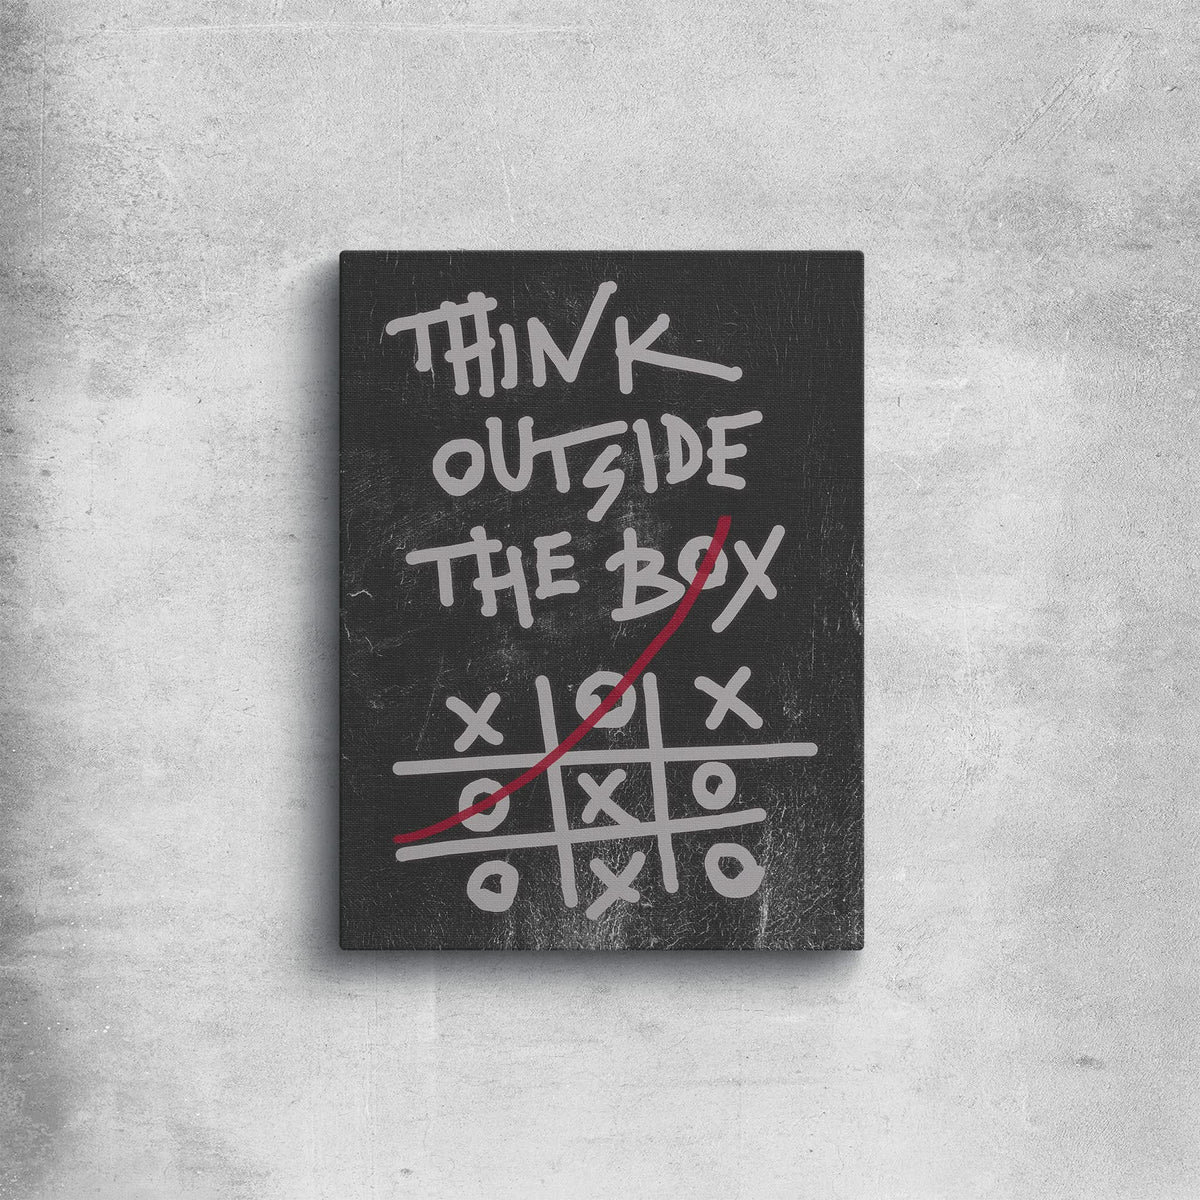 THINK
OUTSIDE
THE BOX
X O X
O X O
O X O